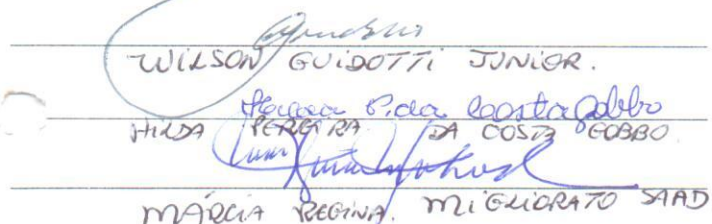 WILSON GUIDOTTI JUNIOR.
P. da Costa Gobbo
HILDA PEREIRA DA COSTA GOBBO
MÁRCIA REGINA. MIGLIORATO SAAD